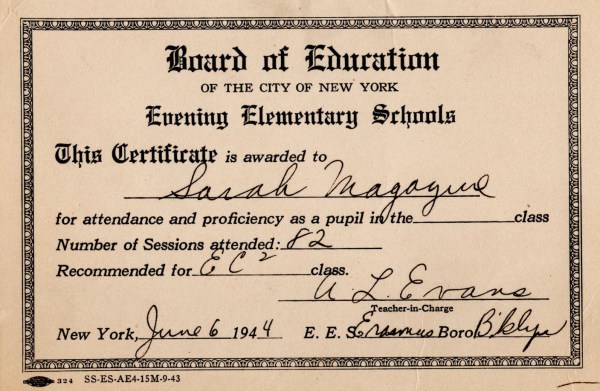 Board of Education
OF THE CITY OF NEW YORK
Evening Elementary Schools
This Certificate is awarded to
Sarah
for attendance and proficiency as a pupil in the class
Number of Sessions attended: 82
Recommended for E C 2 class.
A. L. Evans
Teacher-in-Charge
New York, June 6 1944 E. E. S. Erasmus Boro B'klyn
324 SS-ES-AE4-15M-9-43